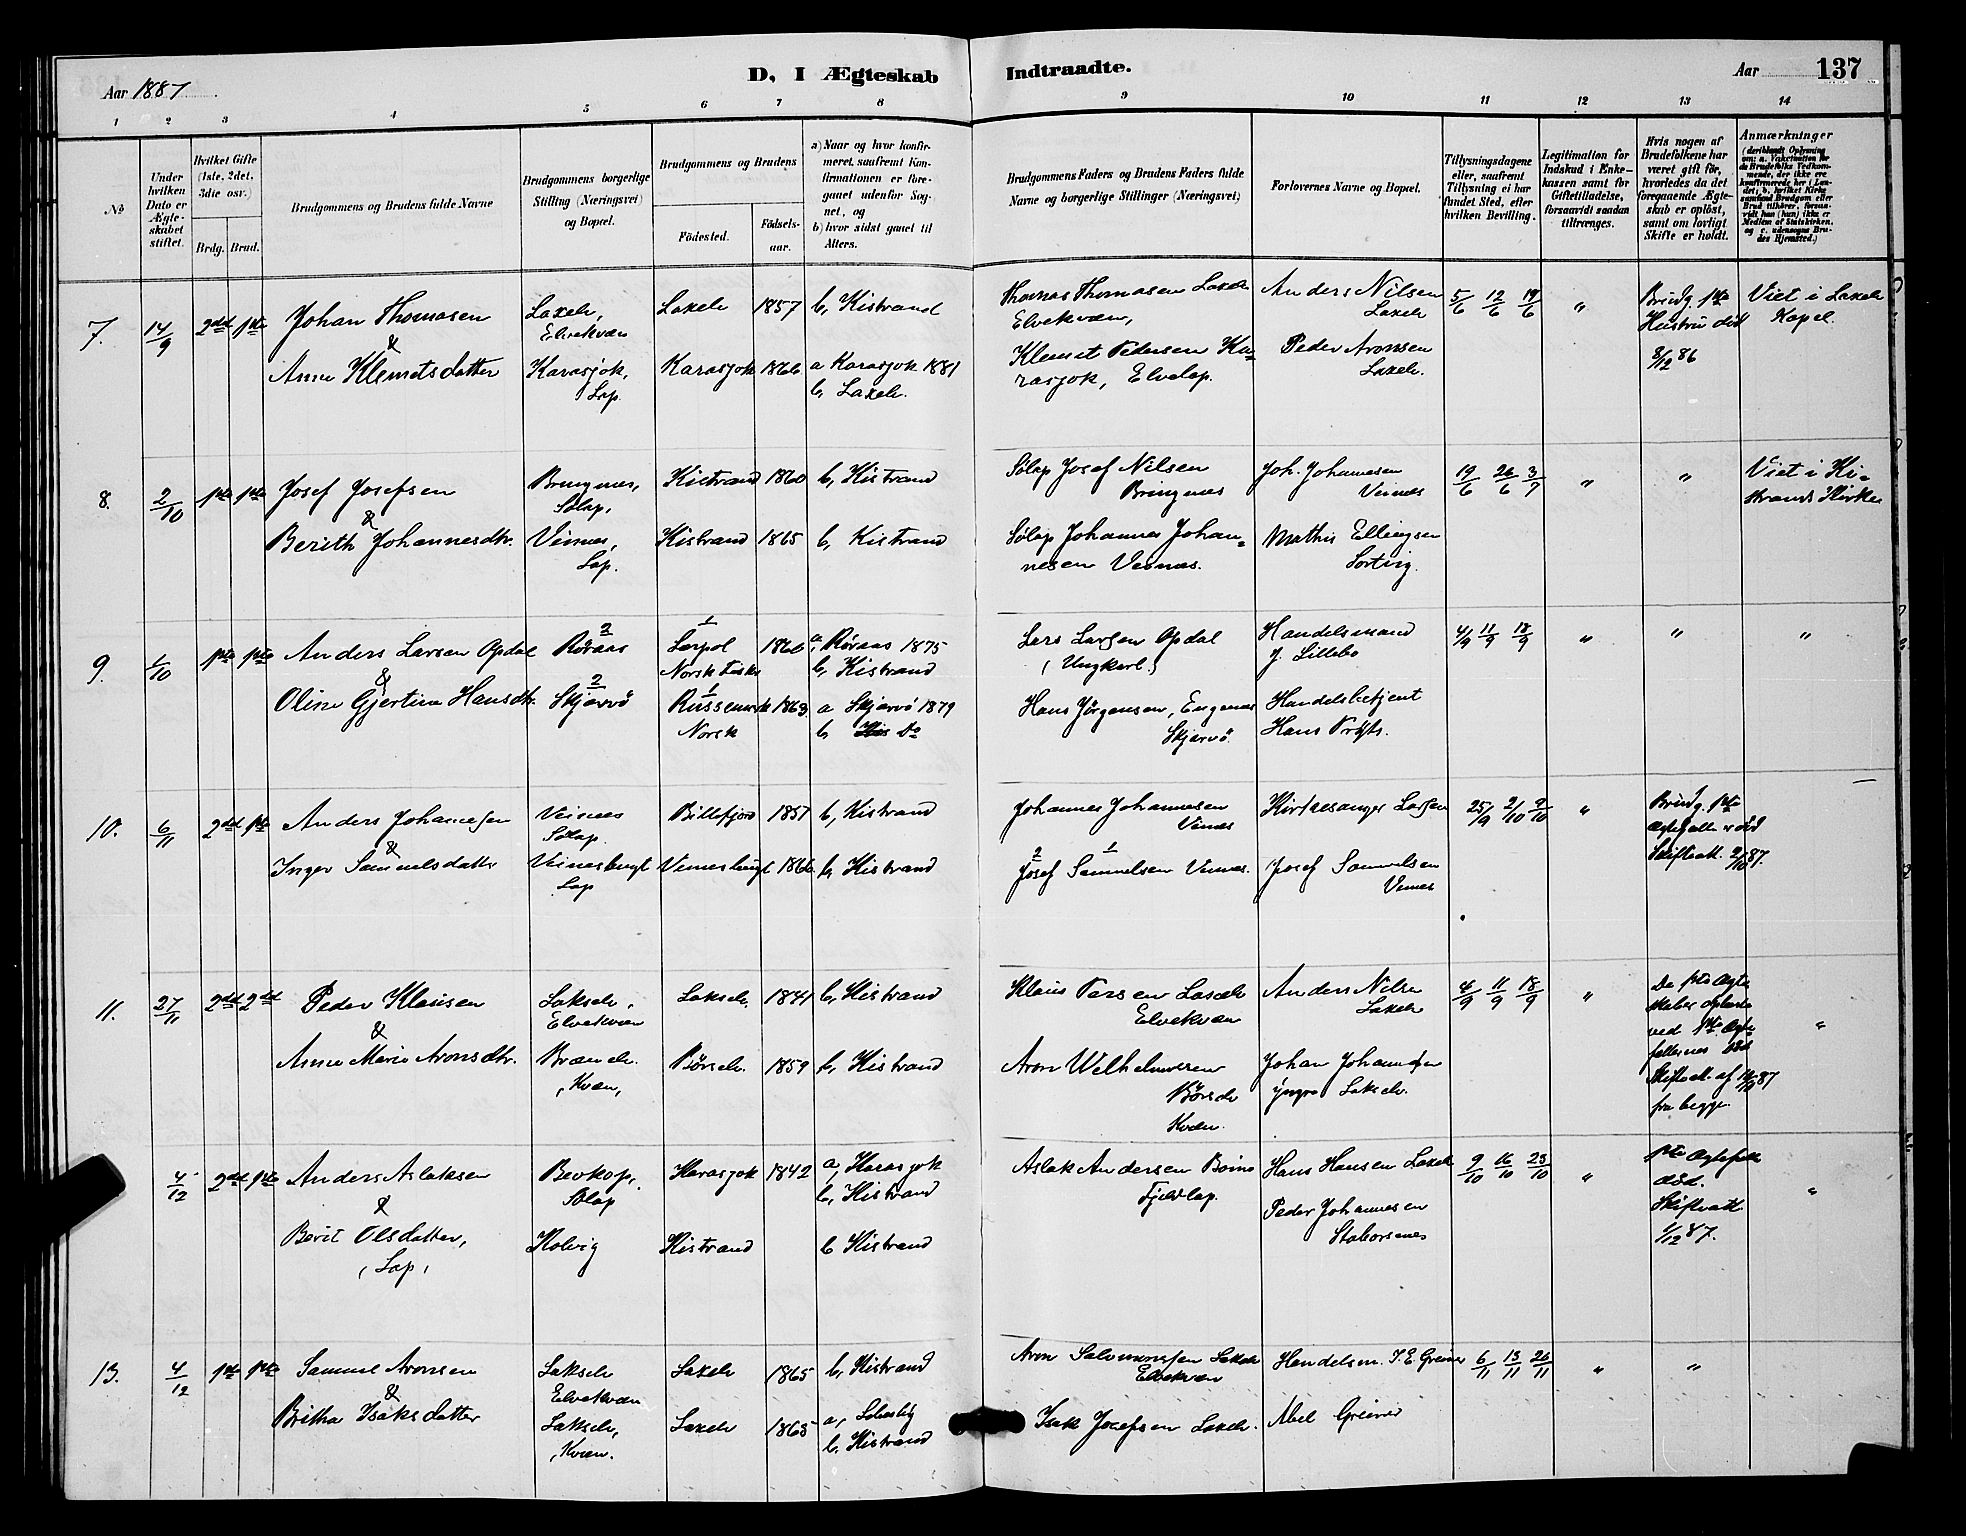 Aar 1887.
D, I Ægteskab Indtraadte.
Aar 137
1 2 3 4 5 6 7 8 9 10 11 12 13 14
No
Under hvilken Dato er Ægteskabet stiftet.
Hvilket Gifte (1ste, 2det, 3die osv.)
Brdg. Brud.
Brudgommens og Brudens fulde Navne
Brudgommens borgerlige Stilling (Næringsvei) og Bopæl.
Brudgommens og Brudens
Födested.
Födsels-aar.
a) Naar og hvor konfirmeret, saafremt Konfirmationen er foregaaet udenfor Sognet, og
b) hvor sidst gaaet til Alters.
Brudgommens Faders og Brudens Faders fulde Navne og borgerlige Stillinger (Næringsvei)
Forlovernes Navne og Bopæl.
Tillysningsdagene eller, saafremt Tillysning ei har fundet Sted, efter hvilken Bevilling.
Legitimation for Indskud i Enkekassen samt for Giftetilladelse, forsaavidt saadan tiltrænges.
Hvis nogen af Brudefolkene har været gift för, hvorledes da det foregaaende Ægteskab er oplöst, samt om lovligt Skifte er holdt.
Anmærkninger
(deriblandt Oplysning om: a. Vakcination for de Brudefolks Vedkommende, der ikke ere konfirmerede her i Landet; b. hvilket Kirkesamfund Brudgom eller Brud tilhörer, forsaavidt han (hun) ikke er Medlem af Statskirken, og c. udensogns Brudes Hjemsted.)
7. 14/9 2det 1ste Johan Thomasen Laxelv, Elvekvæn Laxelv 1857 b, Kistrand Thomas Thomasen Laxelv Elvekvæn, Anders Nilsen Laxelv 5/6 12/6 19/6 " Brudg. 1ste Hustru död 8/12 86 Viet i Laxelv Kapel.
&
Anne Klemetsdatter Karasjok, Lap. Karasjok 1866 a Karasjok 1881 b, Laxelv. Klemet Pedersen Karasjok, Elvelap. Peder Aronsen Laxelv.
8. 2/10 1ste 1ste Josef Josefsen Bringnes, Sölap, Kistrand 1860 b, Kistrand Sölap Josef Nilsen Bringnes Joh. Johannesen Veines 19/6 26/6 3/7 " " Viet i Kistrands Kirke
&
Berith Johannesdtr. Veines, Lap. Kistrand 1865 b, Kistrand Sölap Johannes Johannesen Veines. Mathis Ellingsen Sorting.
9. 1/10 1ste 1ste Anders Larsen Opdal 2 Röraas 1 Norsk 1860 a, Röraas 1875 b, Kistrand Lars Larsen Opdal (Ungkarl) Handelsmand J. Lillebo 4/9 11/9 18/9 " " "
&
Oline Gjertine Hansdtr. 2 Skjærvö 1 Norsk 1863 a Skjærvö 1879 b, Do Hans Jörgensen, Engenes Skjærvö. Handelsbetjent Hans
10. 6/11 2det 1ste Anders Johannesen Veines Sölap. Billefjord 1857 b, Kistrand Johannes Johannesen Veines Kirkesanger Larsen 25/9 2/10 9/10 " Brudg. 1ste Ægtefælle död Skifteatt. 2/10 87.
&
Inger Samuelsdatter Veinesbugt Lap Veinesbugt 1866 b, Kistrand 2 Josef 1 Samuelsen Veines. Josef Samuelsen Veines
11. 27/11 2det 2det Peder Klausen Lakselv, Elvekvæn Lakselv. 1841 b, Kistrand Klaus Persen Laxelv Elvekvæn Anders Nilsen Laxelv 4/9 11/9 18/9 " De 1ste Ægteskaber oplöste ved 1ste Ægtefællernes död Skifteatt. af 87 fra begge. "
&
Anne Marie Aronsdtr. Brændelv. Kvæn, Börselv. 1859 b, Kistrand Aron Wilhelmsen Börselv Kvæn. Johan Johannesen yngre Lakselv.
4/12 2det 1ste Anders Aslaksen Bevkop, Sölap Karasjok 1842 a, Karasjok b, Kistrand Aslak Andersen Fjeldlap. Hans Hansen Laxelv 9/10 16/10 23/10 " 1ste Ægtefælle död. Skifteatt. 1/12 87. "
&
Berit Olsdatter, (Lap, Kolvig Kistrand b Kistrand Peder Johannesen Staborsnes
13. 4/12 1ste 1ste Samuel Aronsen Lakselv Elvekvæn Laxelv 1865 b, Kistrand Aron Salomonsen Lakselv Elvekvæn Handelsm. I. E. Greiner 6/11 13/11 20/11 " "
&
Britha Isaksdatter Lakselv, Kvæn. Laxelv 1865 a, b, Kistrand Isak Josefsen Laxelv. Abel Greiner